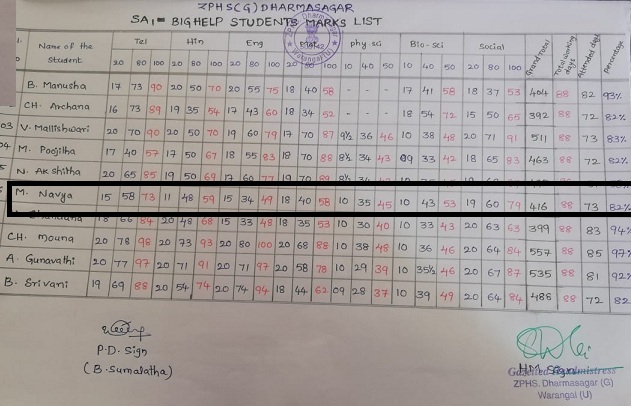 ZPHS(G) DHARMASAGAR
SA1 = BIGHELP STUDENTS MARKS LIST
Name of the Student Tel Hin Eng phy.sci Bio-sci Social Grand Total Total working days Attended days Percentage
20 80 100 20 80 100 20 80 100 20 80 100 10 40 50 10 40 50 20 80 100
B. Manusha 17 73 90 20 50 70 20 55 75 18 40 58 - - - 17 41 58 18 37 53 404 88 82 93%
CH. Archana 16 73 89 19 35 54 17 43 60 18 34 52 - - - 18 54 72 15 50 65 392 88 72 82%
03 V. Malleshwari 20 70 90 20 50 70 19 60 79 17 70 87 9½ 36 46 10 38 48 20 71 91 511 88 73 83%
04 M. Poojitha 17 40 57 17 50 67 18 55 83 18 70 88 8½ 34 43 09 33 42 18 65 83 463 88 72 82%
N. Akshitha 20 65 85 19 50 69 17 60 77 19 70 89 8½ 34
M. Navya 15 58 73 11 48 59 15 34 49 18 40 58 10 35 45 10 43 53 19 60 79 416 88 73 82%
18 66 84 20 48 68 15 33 48 18 35 53 10 30 40 10 33 43 20 63 63 399 88 83 94%
CH. Mouna 20 78 98 20 73 93 20 80 100 20 68 88 10 38 48 10 36 46 20 64 84 557 88 85 97%
A. Gunavathi 20 77 97 20 71 91 20 71 97 20 58 78 10 29 39 10 35½ 46 20 67 87 535 88 81 92%
B. Srivani 19 69 88 20 54 74 20 74 94 18 44 62 09 28 37 10 39 49 20 64 84 488 88 72 82
P.D. Sign
(B. Sumalatha)
HM Sign
Gazetted Headmistress
ZPHS. Dharmasagar (G)
Warangal (U)